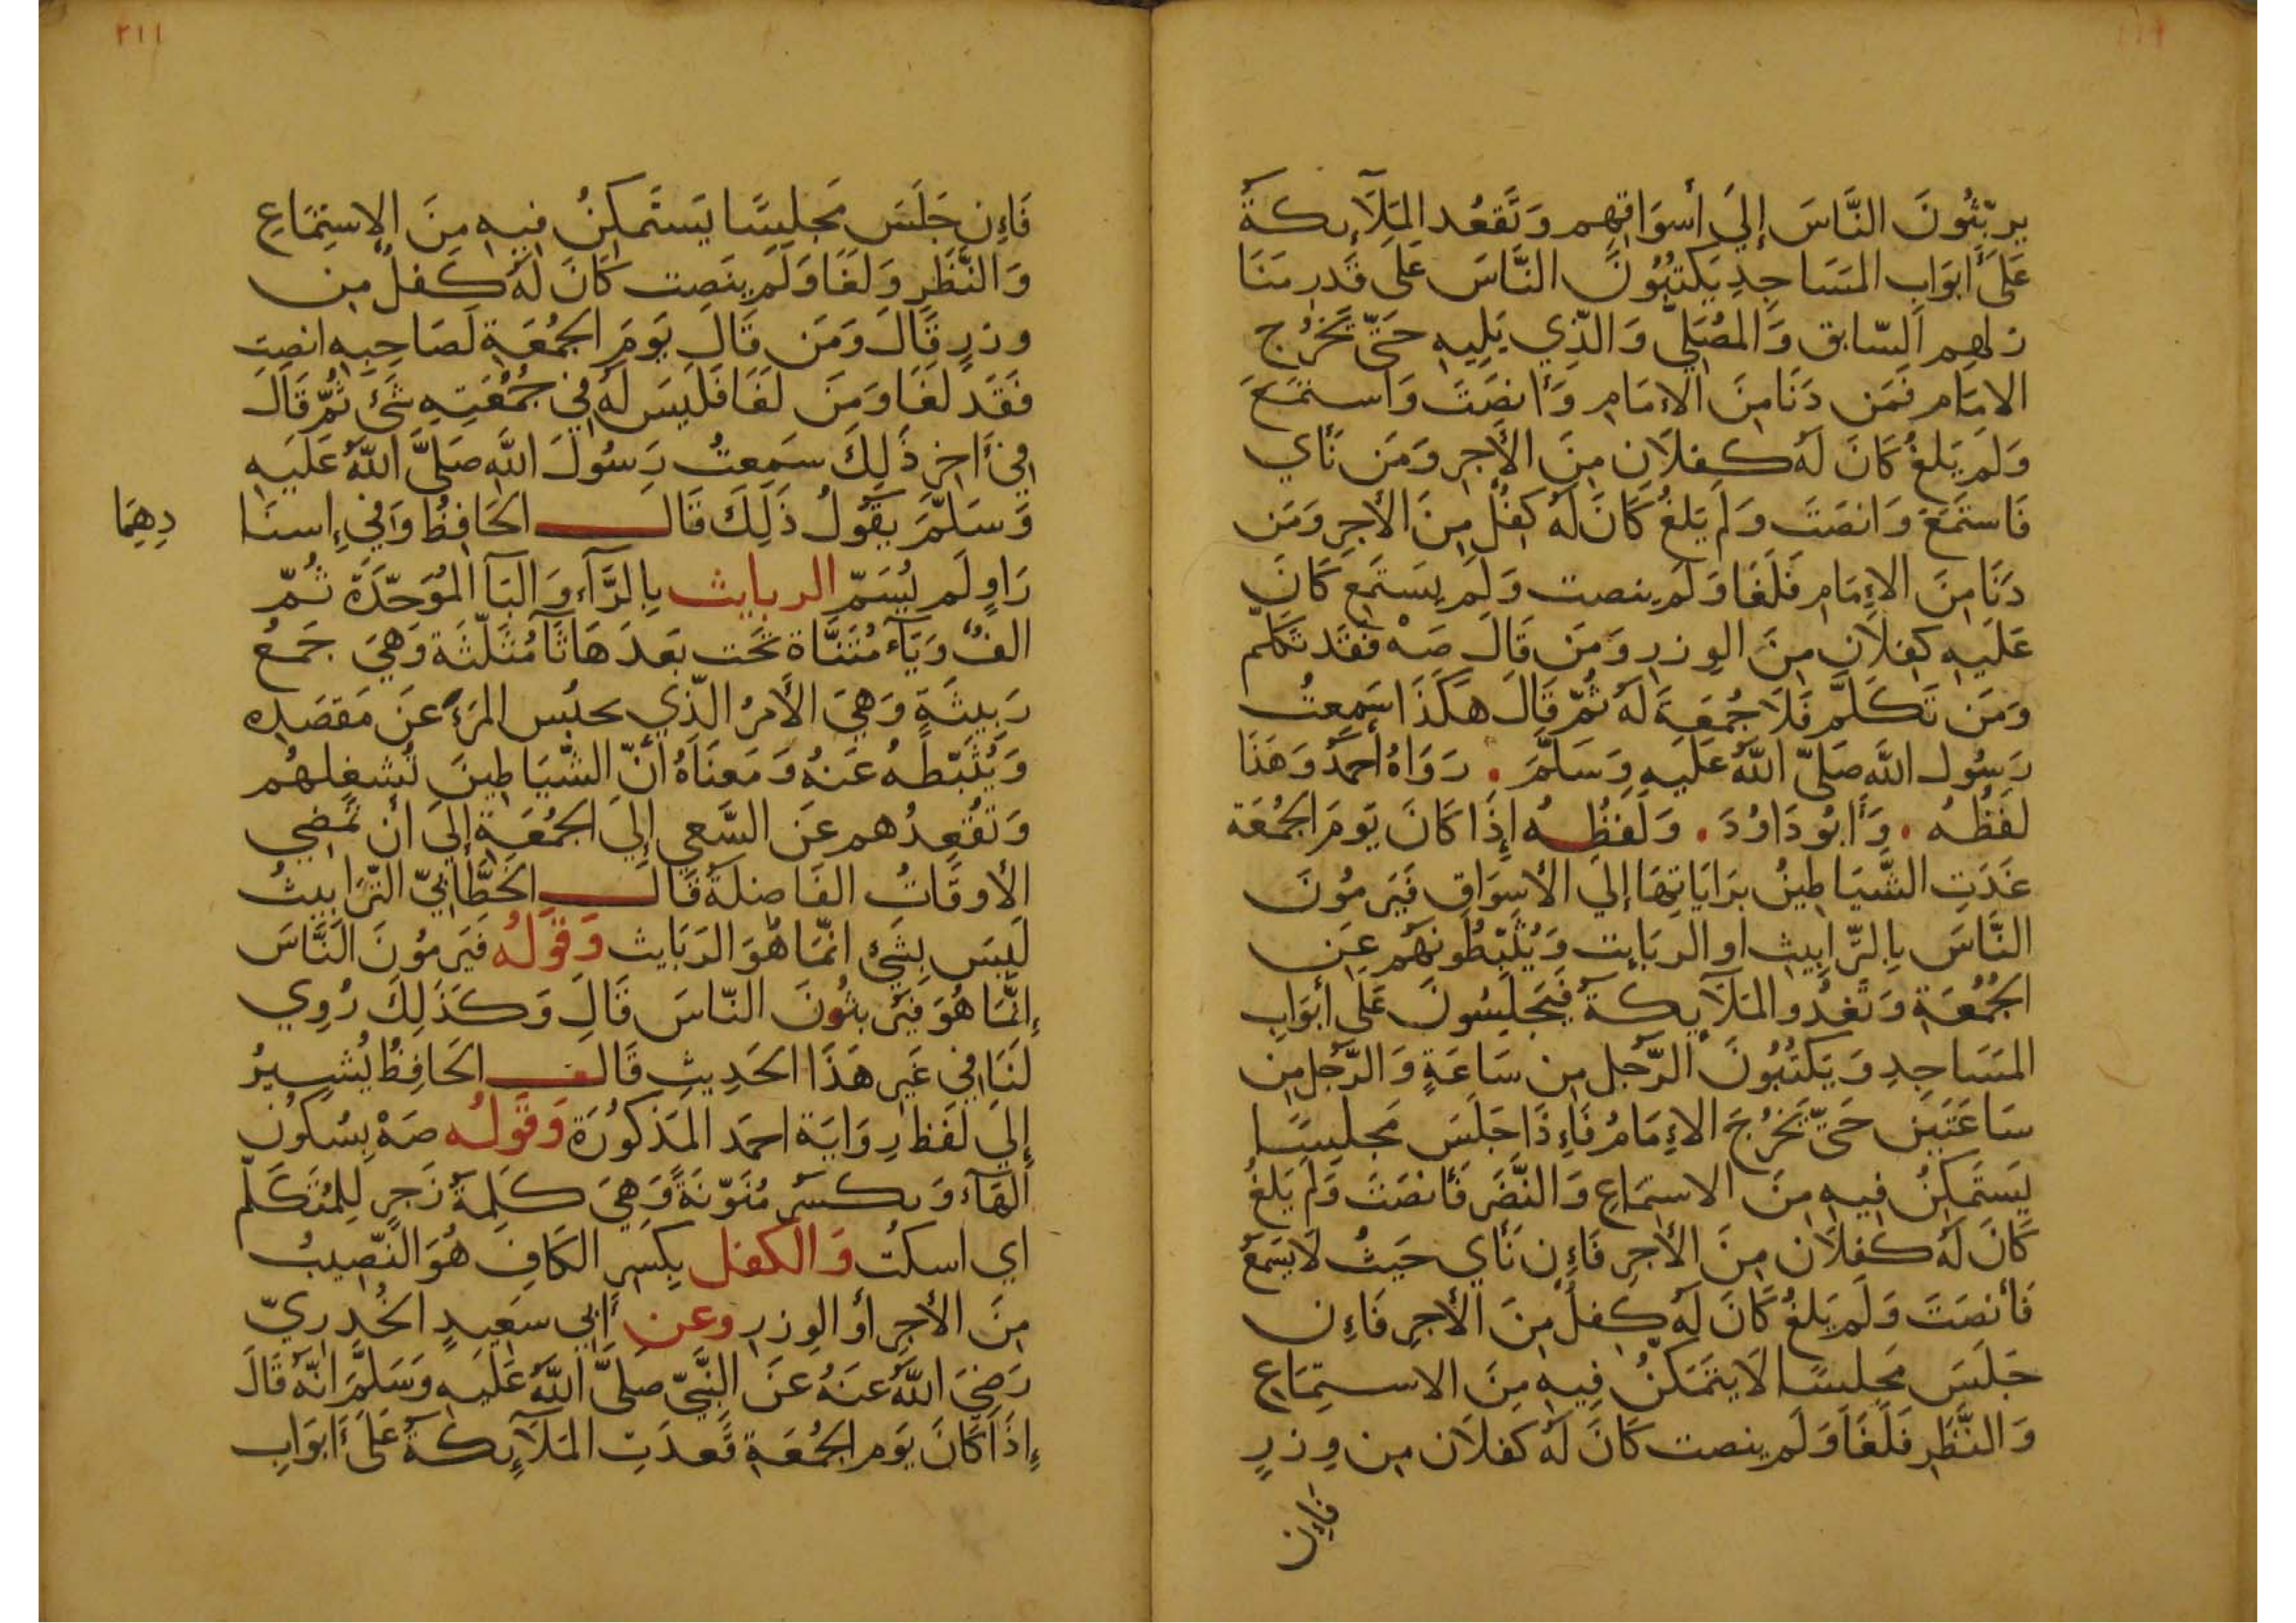 يربِّثُونَ النَّاسَ إِليَ أَسوَاقِهِم وَتَقعُد المَلَآئِكَةُ
عَلَى أَبوَابِ المَسَاجِدِ يَكتُبُونَ النَّاسَ عَلَى قَدرِ مَنَا
زلهِم السّابق وَالمُصَلّي وَالذِّي يَلِيهِ حَتّى تَخرُج
الامَام فَمَن دَنَا مِنَ الاِمَامِ وَأَنصَتَ وَاستَمَعَ
وَلَم يَلغُ كَانَ لَهُ كِفلَانِ مِنَ الأَجرِ وَمَن نَأَي
فَاستَمَعَ وَانصَتَ وَلَم يَلغُ كَانَ لَهُ كِفلٌ مِنَ الأَجرِ وَمَن
دَنَا مِنَ الاِمَامِ فَلَغَا وَلَم ينصت وَلَم يستَمِع كَانَ
عَلَيهِ كِفلَانِ مِنَ الوِزرِ وَمَن قَالَ صَهْ فَقَد تَكَلّمَ
وَمَن تَكَلَّمَ فَلَا جُمعَةَ لَهُ ثُمّ قَالَ هَكَذَا سَمِعتُ
رَسُولَ اللّهِ صَلىَّ اللّهُ عَلَيهِ وَسَلَّمَ . رَوَاهُ أَحمَدُ وَهَذَا
لَفظُهُ . وَأَبُو دَاوُدَ . وَلَفظُهُ إِذَا كَانَ يَومَ الجُمُعَة
غَدَتِ الشَّيَاطِينُ برَايَاتِهَا إِليَ الأَسوَاقِ فَيَرمُونَ
النَّاسَ بِالتَّرابيث او الربَايث وَيُثَبِّطُونَهُم عَنِ
الجُمُعَةِ وَتَغدُو المَلَآئِكَةُ فَيَجلِسُونَ عَلَى أَبوَابِ
المَسَاجِدِ وَيَكتُبُونَ الرَّجُل مِن سَاعَةٍ وَالرَّجُل مِن
سَاعَتَين حَتّى يَخرُجَ الاِمَامُ فَاِذَا جَلَسَ مَجلِسًا
يَستَمكِنُ فِيهِ مِنَ الاستِمَاعِ وَالنَّضَر فَأَنصَتَ وَلَم يَلغُ
كَانَ لَهُ كِفلَان مِنَ الأَجرِ فَاِن نَأَي حَيثُ لَا يَسمَعُ
فَأَنصَتَ وَلَم يَلغُ كَانَ لَهُ كِفلٌ مِنَ الأَجرِ فَاِن
جَلَسَ مَجلِسًا لَا يَتَمَكّنُ فِيهِ مِنَ الاستِمَاعِ
وَالنَّظَرِ فَلَغَا وَلَم ينصت كَانَ لَهُ كفلَان مِن وِزرٍ
فَاِن
٢١١
فَاِن جَلَسَ مَجلِسًا يَستَمكِنُ فِيهِ مِنَ الاِستِمَاعِ
وَالنَّظَرِ وَلَغَا وَلَم ينصِت كَانَ لَهُ كَفلٌ مِن
وزرٍ قَالَ وَمَن قَالَ يَومَ الجُمُعَةِ لَصَاحِبِهِ انصِت
فَقَد لَغَا وَمَن لَغَا فَلَيسَ لَهُ فِي جُمُعَتِهِ شَئ ثُمّ قَالَ
فِي اخِرِ ذَلِكَ سَمِعتُ رَسُولَ اللّهِ صَلىَّ اللّهُ عَلَيهِ
وَسَلَّمَ يَقُولُ ذَلِكَ قَالَ الحَافِظُ وَفِي إِسنَا
دِهِمَا
رَاوٍ لَم يُسَمّ الربايث بِالرَّآءِ وَالبَآ المُوَحّدَةَ ثُمّ
الفٌ وَيَآء مُثَنَّاة تَحت بَعدَهَا ثَآ مُثَلّثَة وَهِيَ جَمعُ
رَبِيثَةٍ وَهِيَ الأَمرُ الذِّي يحبُس المَرءَ عَن مَقصَدِهِ
وَيُثَبّطهُ عَنهُ وَمَعنَاهُ أَنّ الشّيَاطِينَ تُشغِلهُم
وَتُقعِدُهم عَنِ السَّعي إِليَ الجُمُعَةِ إِليَ أَن تَمضِي
الأَوقَاتُ الفَاضِلَةُ قَالَ الخَطَّابيّ التّرَابيثُ
لَيسَ بِشَئٍ انّمَا هُوَ الرَبَايث وَقَولُه فَيَرمُونَ النَّاسَ
إِنَّمَا هُوَ فَيُرَبثُونَ النّاسَ قَالَ وَكَذَلِكَ رُوِي
لَنَا فِي غَيرِ هَذَا الحَدِيثِ قَالَ الحَافِظُ يُشِيرُ
إِليَ لَفظِ رِوَايَة احمَد المَذكُورَة وَقَولُه صَهْ بِسُكُونِ
الهَآء وَبكسر مُنَوّنَةً وَهِيَ كَلِمَةُ زَجرٍ لِلمُتَكَلّم
اي اسكُت وَالكفل بِكَسرِ الكَافِ هُوَ النَّصِيبُ
مِنَ الأَجرِ أَو الوِزرِ وعن أَبي سَعِيدٍ الخُدرِيّ
رَضِيَ اللّهُ عَنهُ عَنِ النَّبِيّ صَلىَّ اللّهُ عَلَيهِ وَسَلَّمَ انّهُ قَالَ
إِذَا كَانَ يَوم الجُمُعَةِ قَعدَتِ المَلَآئِكَةُ عَلَى أَبوَابِ